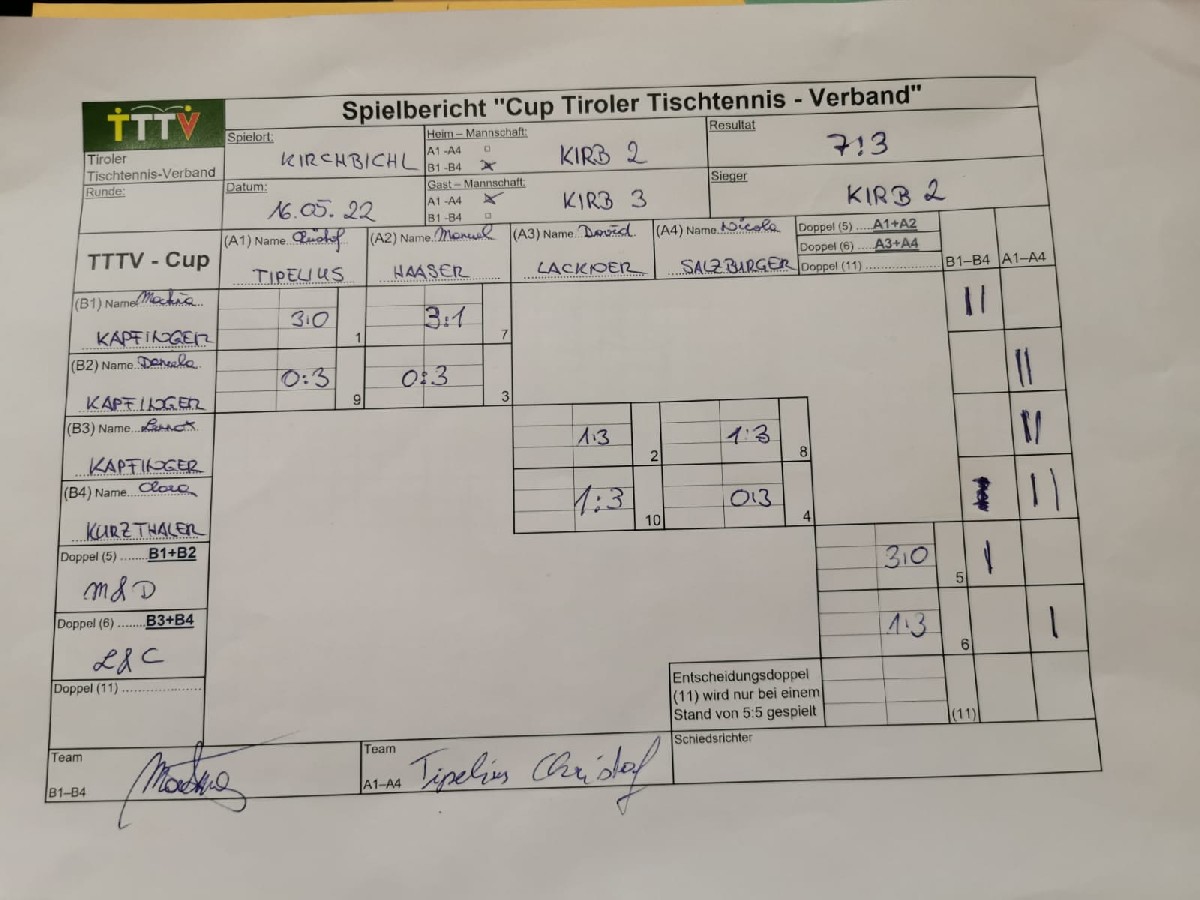 Spielbericht "Cup Tiroler Tischtennis - Verband"
TTTV
Tiroler
Tischtennis-Verband
Spielort:
KIRCHBICHL
Heim – Mannschaft:
A1 -A4
B1 -B4 x
KIRB 2
Resultat
7:3
Runde:
Datum:
16.05.22
Gast – Mannschaft:
A1 -A4 x
B1 -B4
KIRB 3
Sieger
KIRB 2
TTTV - Cup
(A1) Name Christof
TIPELIUS
(A2) Name Manuel
HAASER
(A3) Name David
LACKNER
(A4) Name Nicola
SALZBURGER
Doppel (5) ..... A1+A2
Doppel (6) ..... A3+A4
Doppel (11) ..................
B1–B4 A1–A4
(B1) Name
KAPFINGER
3:0 1
3:1 7
||
(B2) Name Daniela
KAPFINGER
0:3 9
0:3 3
||
(B3) Name
KAPFINGER
1:3 2
1:3 8
||
(B4) Name Clara
KURZTHALER
1:3 10
0:3 4
||
Doppel (5) ........ B1+B2
M & D
3:0 5
|
Doppel (6) ........ B3+B4
L & C
1:3 6
|
Doppel (11) ...................
Entscheidungsdoppel
(11) wird nur bei einem
Stand von 5:5 gespielt
(11)
Team
B1–B4
Team
A1–A4
Tipelius Christof
Schiedsrichter